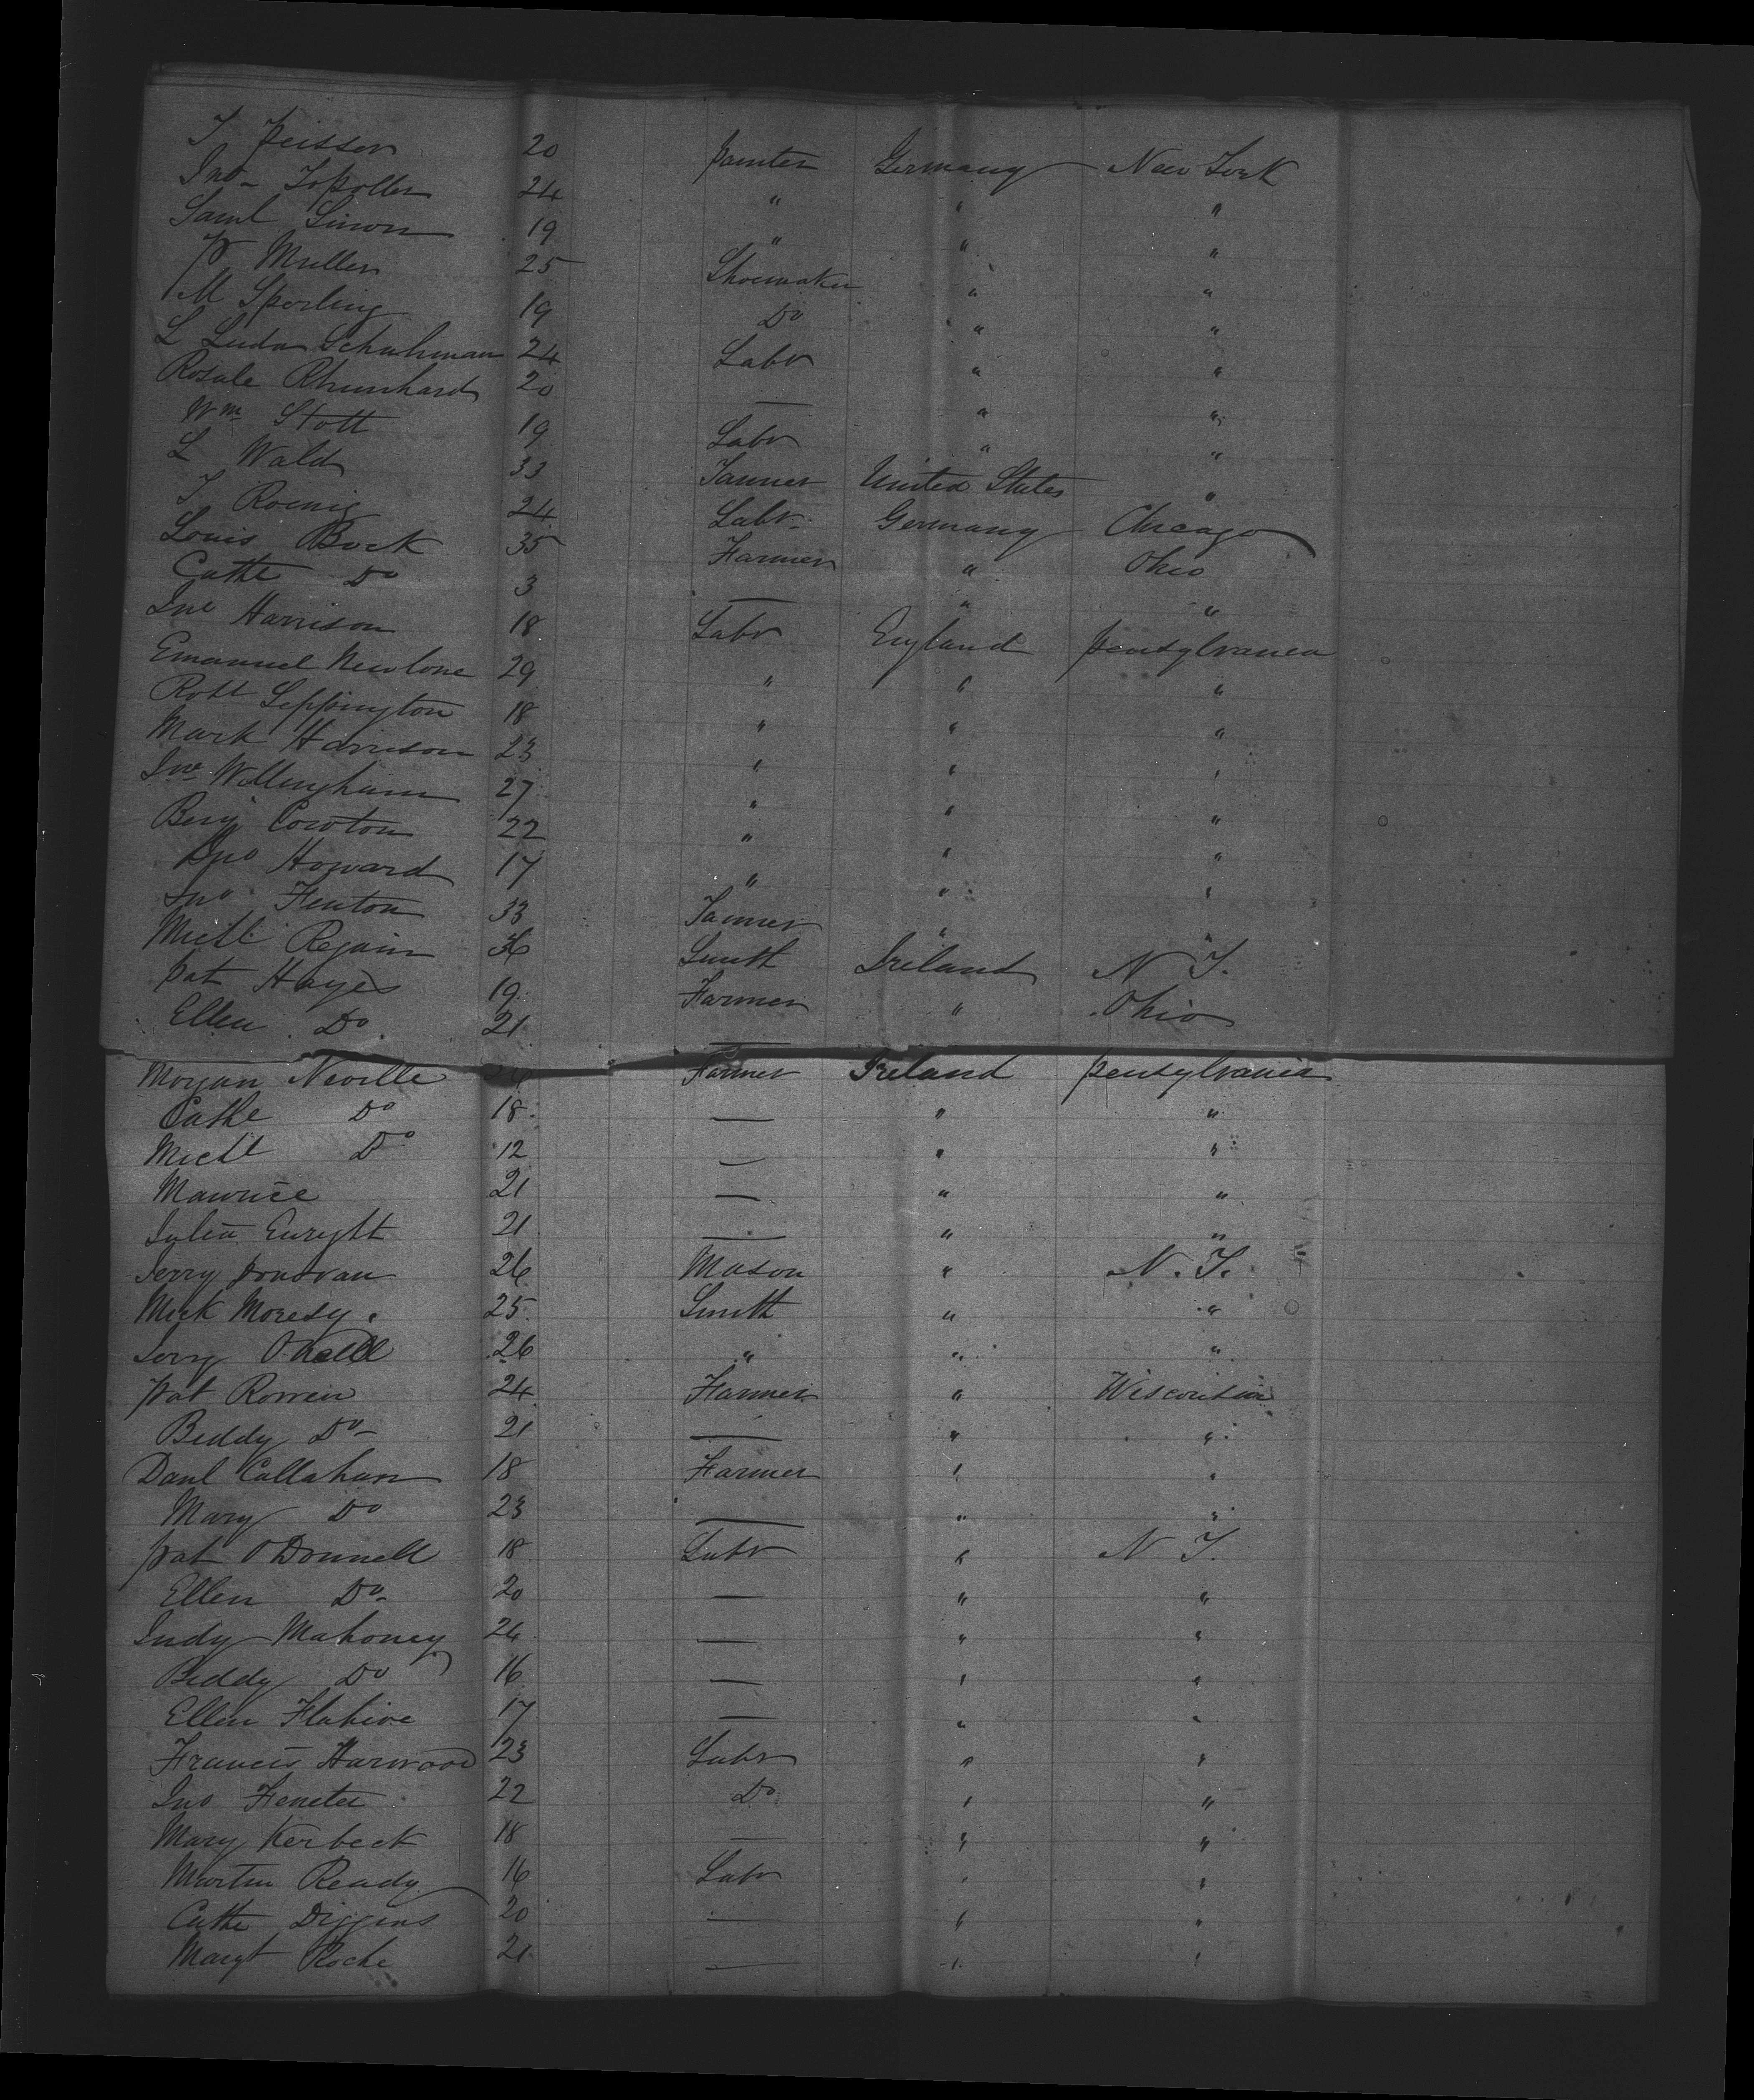 T Peisser 20 painter Germany New York
Jno- Topoller 24 " " "
Saml Simon 19 " " "
P Muller 25 Shoemaker " "
M Sporling 19 Do " "
L Luda Schuhman 24 Labr " "
Rosale Rhunhard 20 — " "
Wm Stott 19 Labr " "
L Wald 33 Tanner United States "
T Roenig 24 Labr. Germany Chicago
Louis Bock 35 Farmer " Ohio
Cathe Do 3 — " "
Jno Harrison 18 Labr England pensylvanea
Emanuel Newlone 29 " " "
Robt Leppington 18 " " "
Mark Harrison 23 " " "
Jno Willingham 27 " " "
Benj Cowton 22 " " "
Jno Howard 17 " " "
Jno Fenton 33 Tanner " "
Michl Regain 36 Smith Ireland N Y.
Pat Hayes 19 Farmer " Ohio
Ellen Do 21 —
Morgan Neville Farmer Ireland pensylvanea
Cathe Do 18 — " "
Michl Do 12 — " "
Maurice 21 — " "
Julia Enryht 21 — " "
Jerry Donovan 26 Mason " N. Y.
Mick Moresy 25 Smith " "
Jerry ONeill 26 " " "
Pat Rowen 24 Farmer " Wisconsin
Biddy Do- 21 — " "
Danl Callahan 18 Farmer " "
Mary Do 23 — " "
Pat ODonnell 18 Labr " N Y.
Ellen Do- 20 — " "
Judy Mahoney 24 — " "
Biddy Do 16 — " "
Ellen Flahive 17 — " "
Francis Harwood 23 Labr " "
Jno Feneter 22 Do " "
Mary Kerbeck 18 — " "
Martin Ready 16 Labr " "
Cathe Diggins 20 — " "
Margt Roche 21 — " "